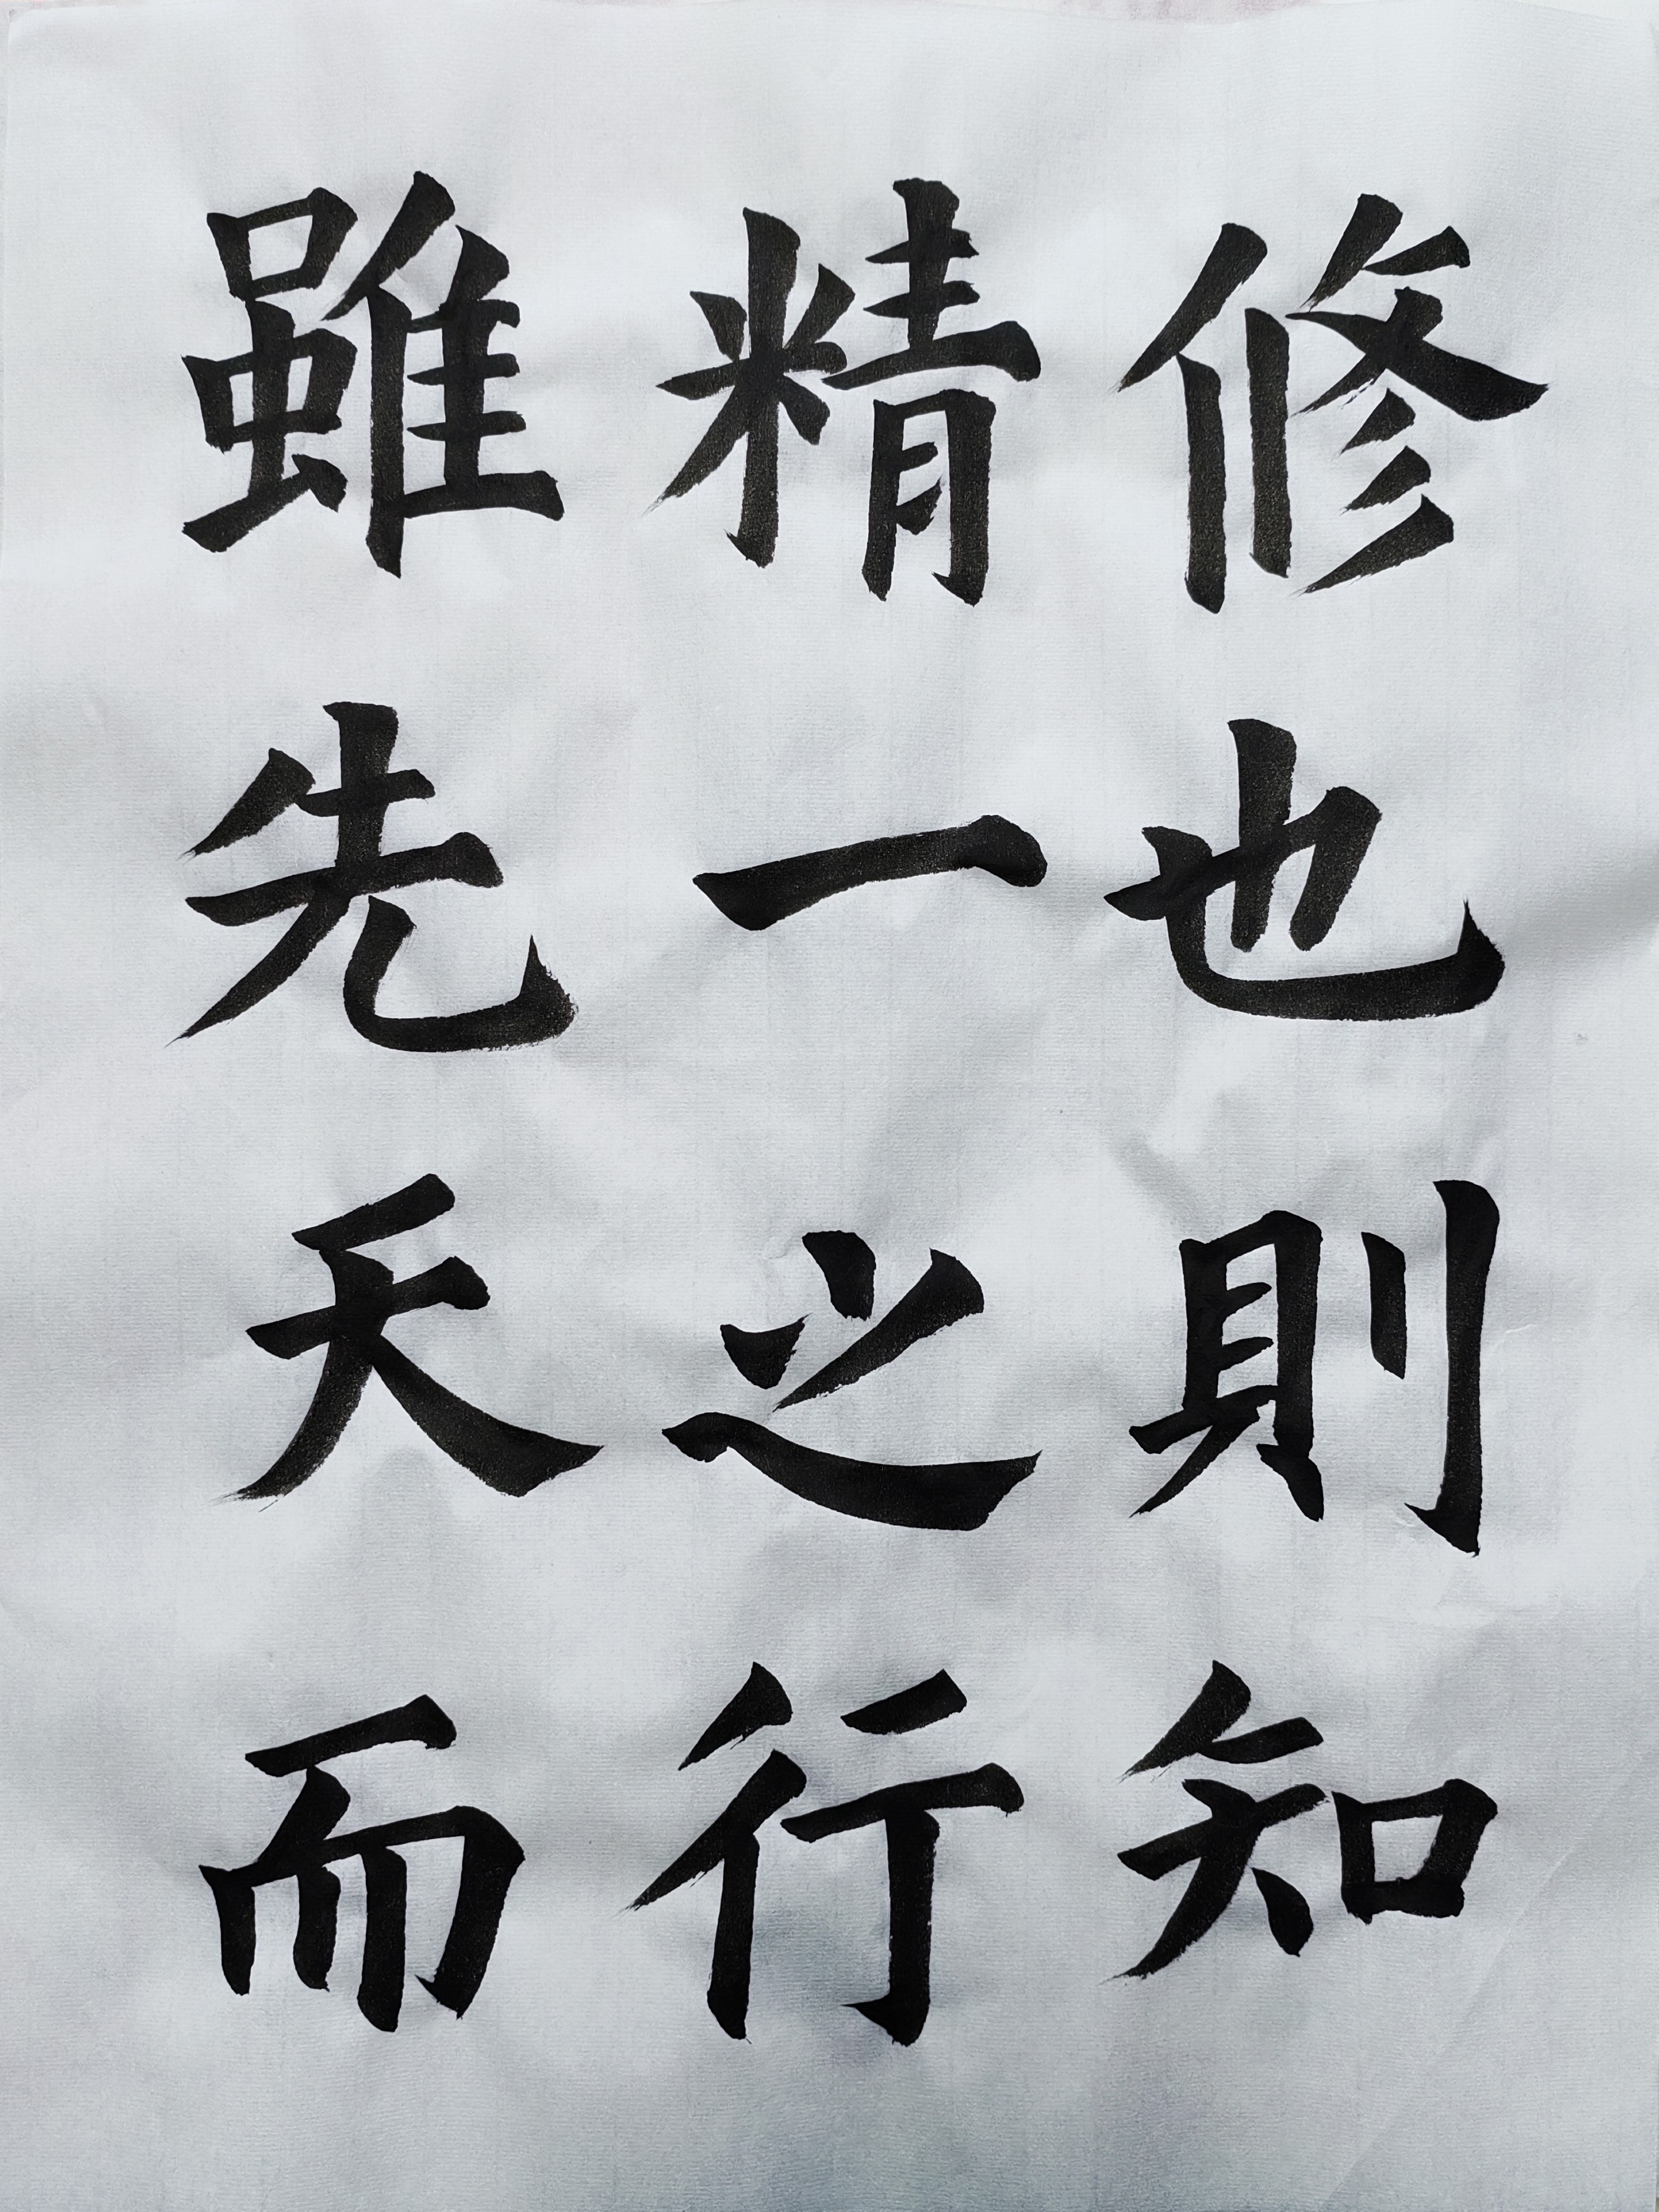 修也則知
精一之行
雖先天而